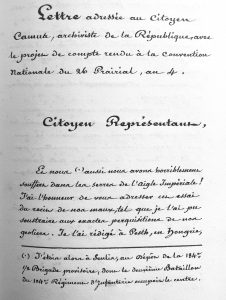 Lettre adressée au Citoyen
Camus, archiviste de la République, avec
le projet de compte rendu à la Convention
Nationale du 26 Prairial, an 4.
Citoyen Représentant,
Et nous (·) aussi nous avons horriblement
souffert dans les serres de l'Aigle Impériale!
J'ai l'honneur de vous adresser cet essai
du récit de nos maux, tel que je l'ai pu
soustraire aux exactes perquisitions de nos
geoliers. Je l'ai rédigé à Pesth, en Hongrie,
(·) J'étais alors à Senlis, au Dépôt de la 184e
1/2 Brigade provisoire, dont le deuxième Bataillon
du 104e Régiment d'Infanterie occupait le centre.